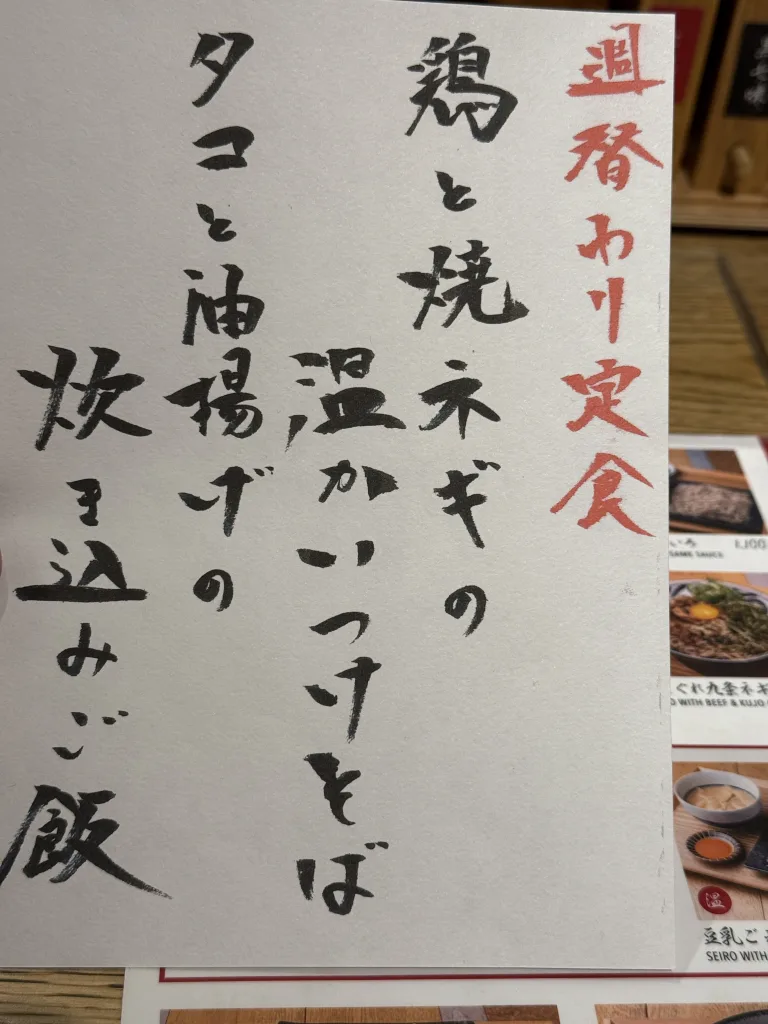 週替わり定食
鶏と焼ネギの
温かいつけそば
タコと油揚げの
炊き込みご飯
1,100
SAME SAUCE
ぐれ九条ネギ
WITH BEEF & KUJO
温
豆乳ご
SEIRO WITH